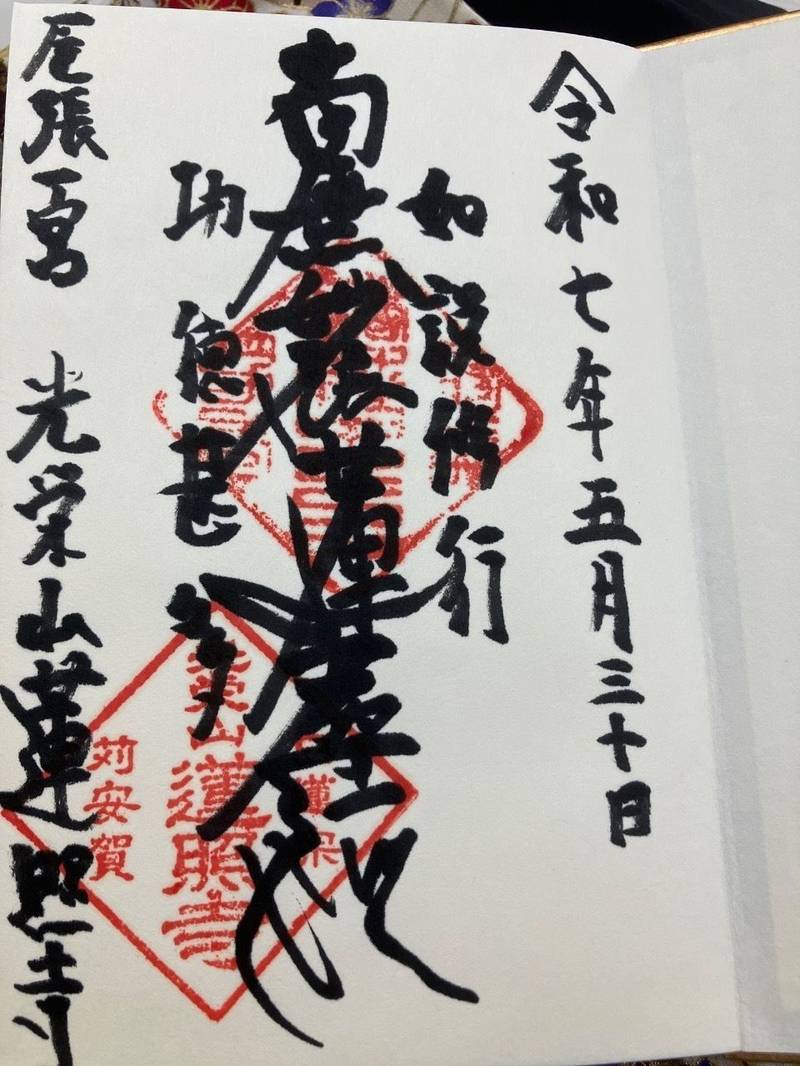 令和七年五月三十日
如説修行
南無妙法蓮華経
功徳甚多
尾張一宮 光栄山蓮照寺
光栄山
蓮照寺
苅安賀